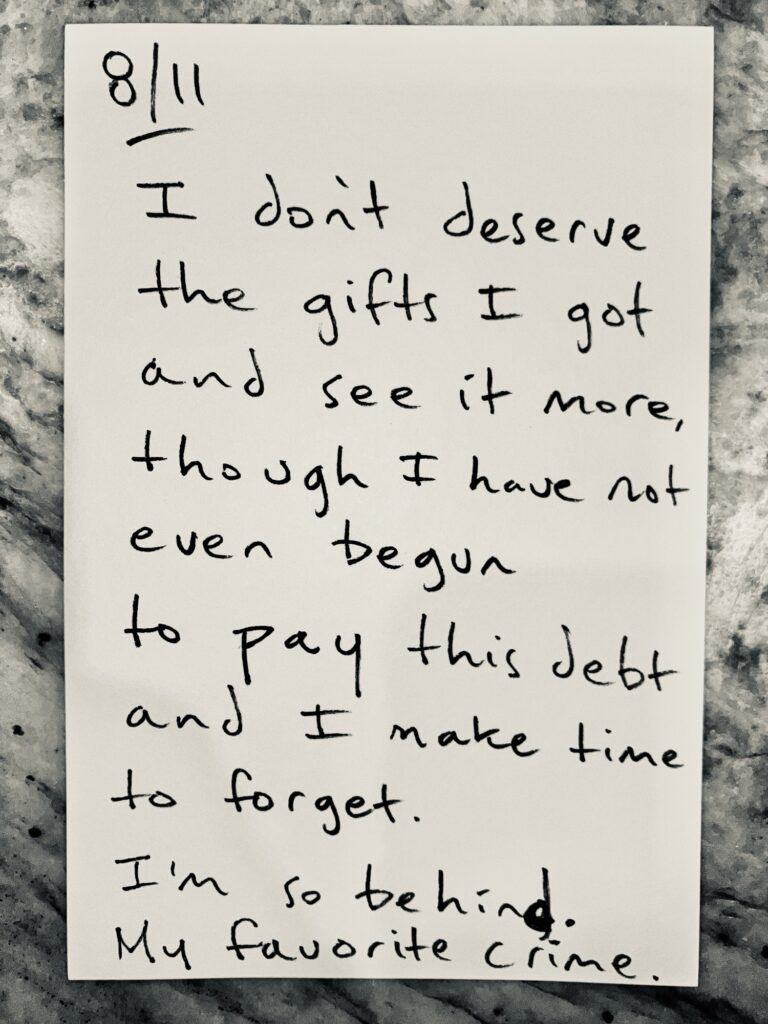 8/11
I don't deserve
the gifts I got
and see it more,
though I have not
even begun
to pay this debt
and I make time
to forget.
I'm so behind.
My favorite crime.